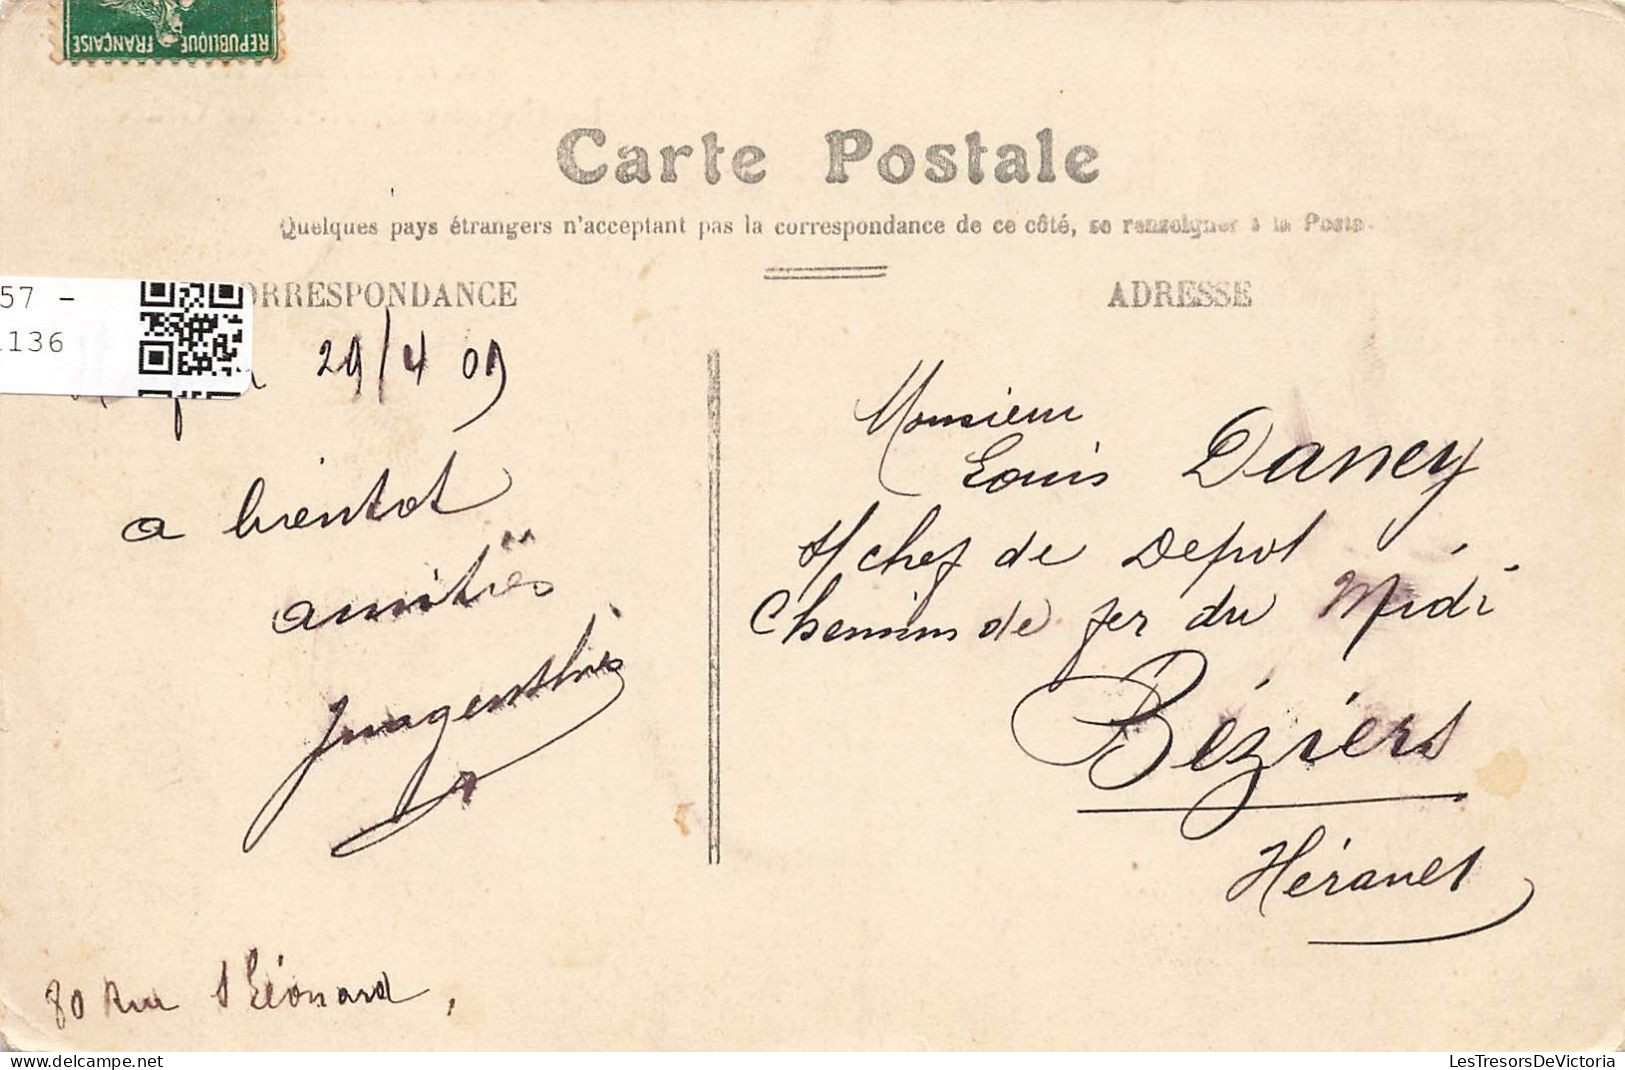 REPUBLIQUE FRANÇAISE
Carte Postale
Quelques pays étrangers n'acceptant pas la correspondance de ce côté, se renseigner à la Poste.
57 -
1136
ORRESPONDANCE
ADRESSE
29/4 09
a bientot
amitiés
Monsieur
Louis Daney
s/ chef de Depot
Chemins de fer du Midi
Béziers
Hérault
80 Rue St Léonard,
LesTresorsDeVictoria